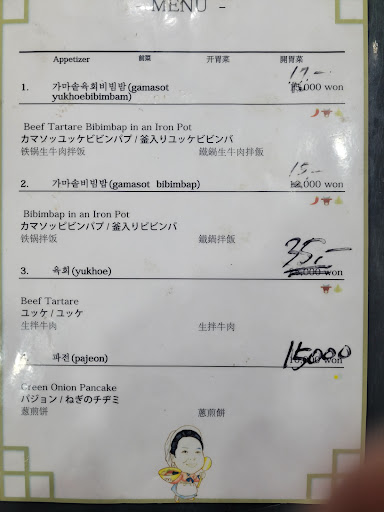 - MENU -
Appetizer 前菜 开胃菜 開胃菜
17.-
1. 가마솥육회비빔밥(gamasot ,000 won
yukhoebibimbam)
Beef Tartare Bibimbap in an Iron Pot
カマソッユッケビビンバプ / 釜入りユッケビビンバ
铁锅生牛肉拌饭 鐵鍋生牛肉拌飯
15.-
2. 가마솥비빔밥(gamasot bibimbap) 12,000 won
Bibimbap in an Iron Pot
カマソッビビンバプ / 釜入りビビンバ
铁锅拌饭 鐵鍋拌飯
35.-
3. 육회(yukhoe) ,000 won
Beef Tartare
ユッケ / ユッケ
生拌牛肉 生拌牛肉
15000
4. 파전(pajeon) won
Green Onion Pancake
パジョン / ねぎのチヂミ
葱煎餅 蔥煎餅